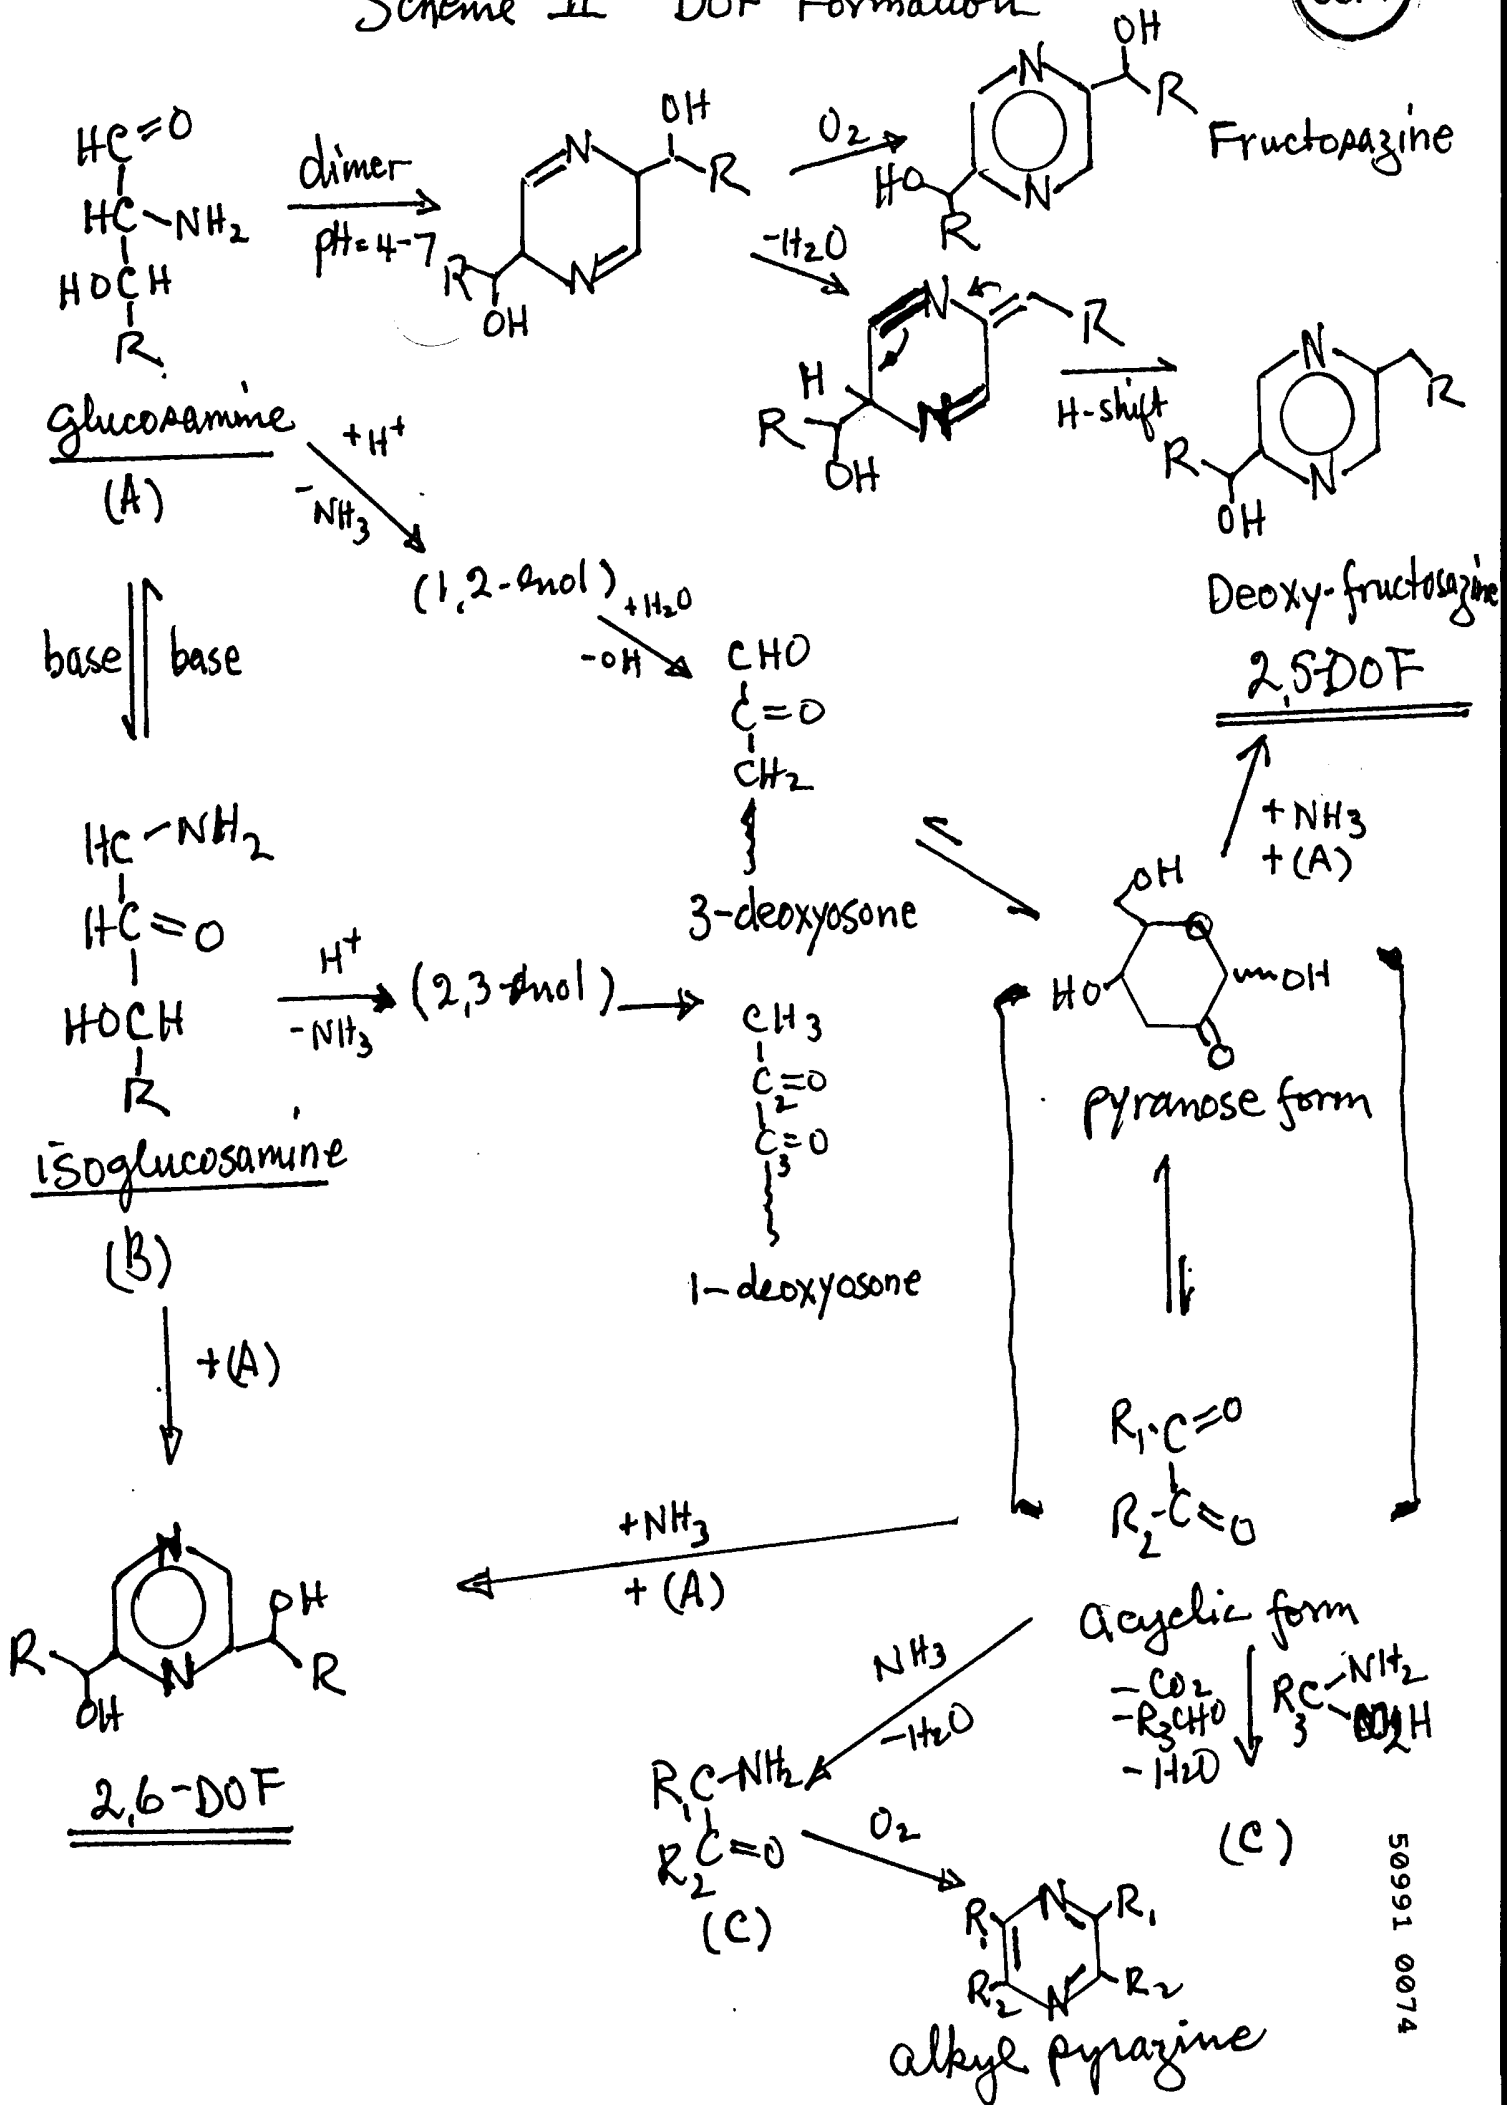 Scheme II DOF Formation
HC=O
HC-NH2
HOCH
R
glucosamine
(A)
dimer
pH=4-7
N
OH
R
R
N
OH
O2
-H2O
OH
N
R
HO
N
R
Fructosazine
N
R
H
N
R
OH
H-shift
N
R
R
N
OH
Deoxy-fructosazine
2,5-DOF
+H+
-NH3
(1,2-enol)
+H2O
-OH
CHO
C=O
CH2
3-deoxyosone
base
base
+NH3
+(A)
HC-NH2
HC=O
HOCH
R
isoglucosamine
(B)
H+
-NH3
(2,3-enol)
CH3
C=O
2
C=O
3
1-deoxyosone
OH
O
HO
OH
O
pyranose form
+(A)
R1-C=O
R2-C=O
acyclic form
+NH3
+(A)
N
OH
R
N
R
OH
2,6-DOF
NH3
-H2O
-CO2
-R3CHO
-H2O
R3C-NH2
(C)
R1C-NH2
R2C=O
(C)
O2
R1
N
R1
R2
N
R2
alkyl pyrazine
50991 0074